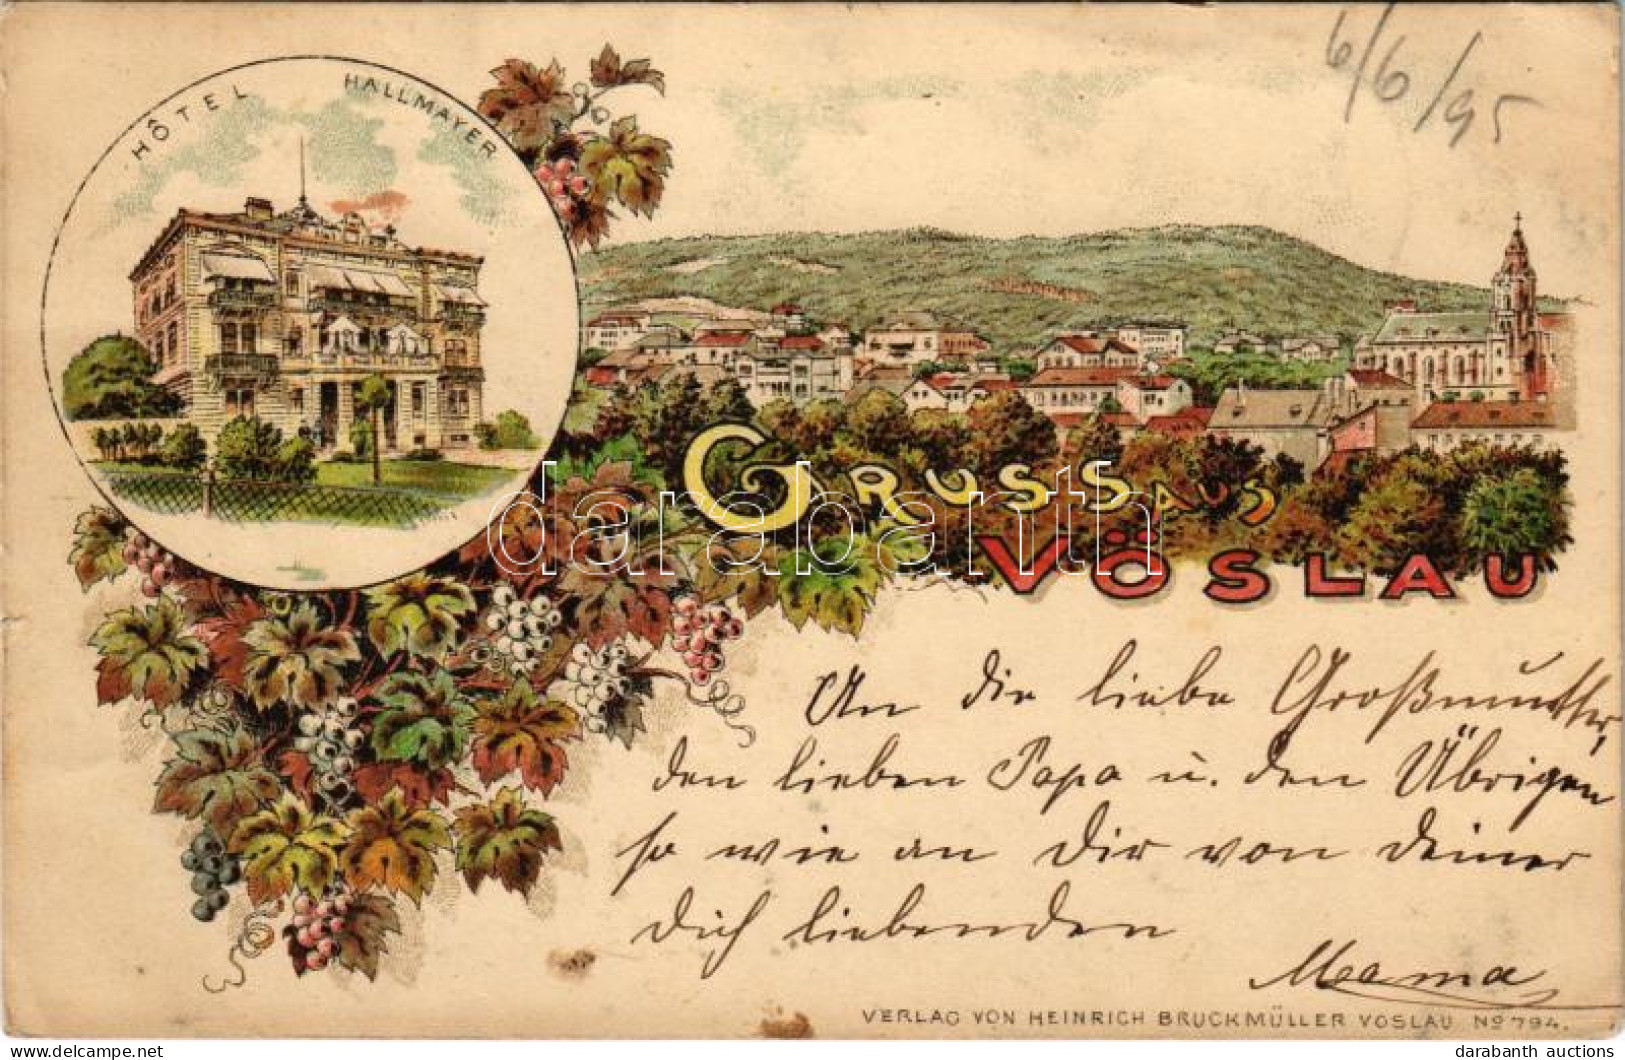 6/6/95
HÔTEL HALLMAYER
GRUSS AUS
VÖSLAU
An die liebe Großmutter,
den lieben Papa u. den Übrigen
so wie an Dir von Deiner
Dich liebenden
Mama
VERLAG VON HEINRICH BRUCKMÜLLER VÖSLAU Nº 794.
darabanth
delcampe.net
darabanth auctions